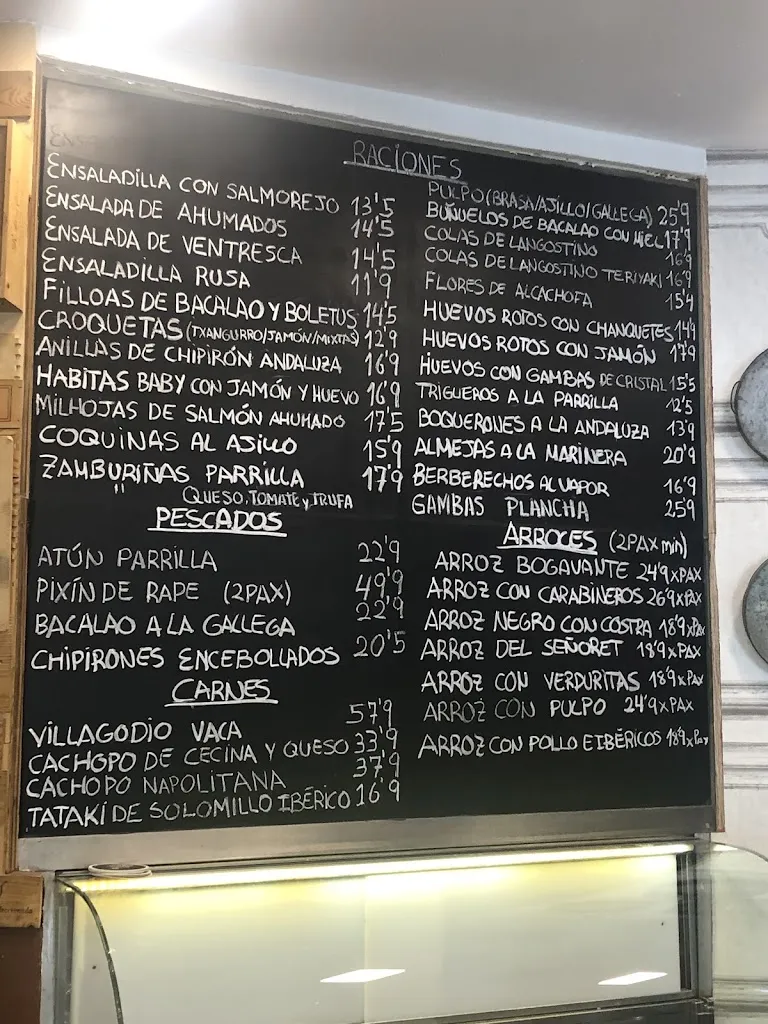 RACIONES
ENSALADILLA CON SALMOREJO 13'5
ENSALADA DE AHUMADOS 14'5
ENSALADA DE VENTRESCA 14'5
ENSALADILLA RUSA 11'9
FILLOAS DE BACALAO Y BOLETUS 14'5
CROQUETAS (TXANGURRO/JAMÓN/MIXTAS) 12'9
ANILLAS DE CHIPIRÓN ANDALUZA 16'9
HABITAS BABY CON JAMÓN Y HUEVO 16'9
MILHOJAS DE SALMÓN AHUMADO 17'5
COQUINAS AL AJILLO 15'9
ZAMBURIÑAS PARRILLA 17'9
" QUESO, TOMATE y TRUFA
PESCADOS
ATÚN PARRILLA 22'9
PIXÍN DE RAPE (2PAX) 49'9
BACALAO A LA GALLEGA 22'9
CHIPIRONES ENCEBOLLADOS 20'5
CARNES
VILLAGODIO VACA 57'9
CACHOPO DE CECINA Y QUESO 33'9
CACHOPO NAPOLITANA 37'9
TATAKI DE SOLOMILLO IBÉRICO 16'9
PULPO (BRASA/AJILLO/GALLEGA) 25'9
BUÑUELOS DE BACALAO CON MIEL 17'9
COLAS DE LANGOSTINO 16'9
COLAS DE LANGOSTINO TERIYAKI 16'9
FLORES DE ALCACHOFA 15'4
HUEVOS ROTOS CON CHANQUETES 14'9
HUEVOS ROTOS CON JAMÓN 17'9
HUEVOS CON GAMBAS DE CRISTAL 15'5
TRIGUEROS A LA PARRILLA 12'5
BOQUERONES A LA ANDALUZA 13'9
ALMEJAS A LA MARINERA 20'9
BERBERECHOS AL VAPOR 16'9
GAMBAS PLANCHA 25'9
ARROCES (2PAX min)
ARROZ BOGAVANTE 24'9 x PAX
ARROZ CON CARABINEROS 26'9 x PAX
ARROZ NEGRO CON COSTRA 18'9 x PAX
ARROZ DEL SEÑORET 18'9 x PAX
ARROZ CON VERDURITAS 18'9 x PAX
ARROZ CON PULPO 24'9 x PAX
ARROZ CON POLLO E IBÉRICOS 18'9 x Pax